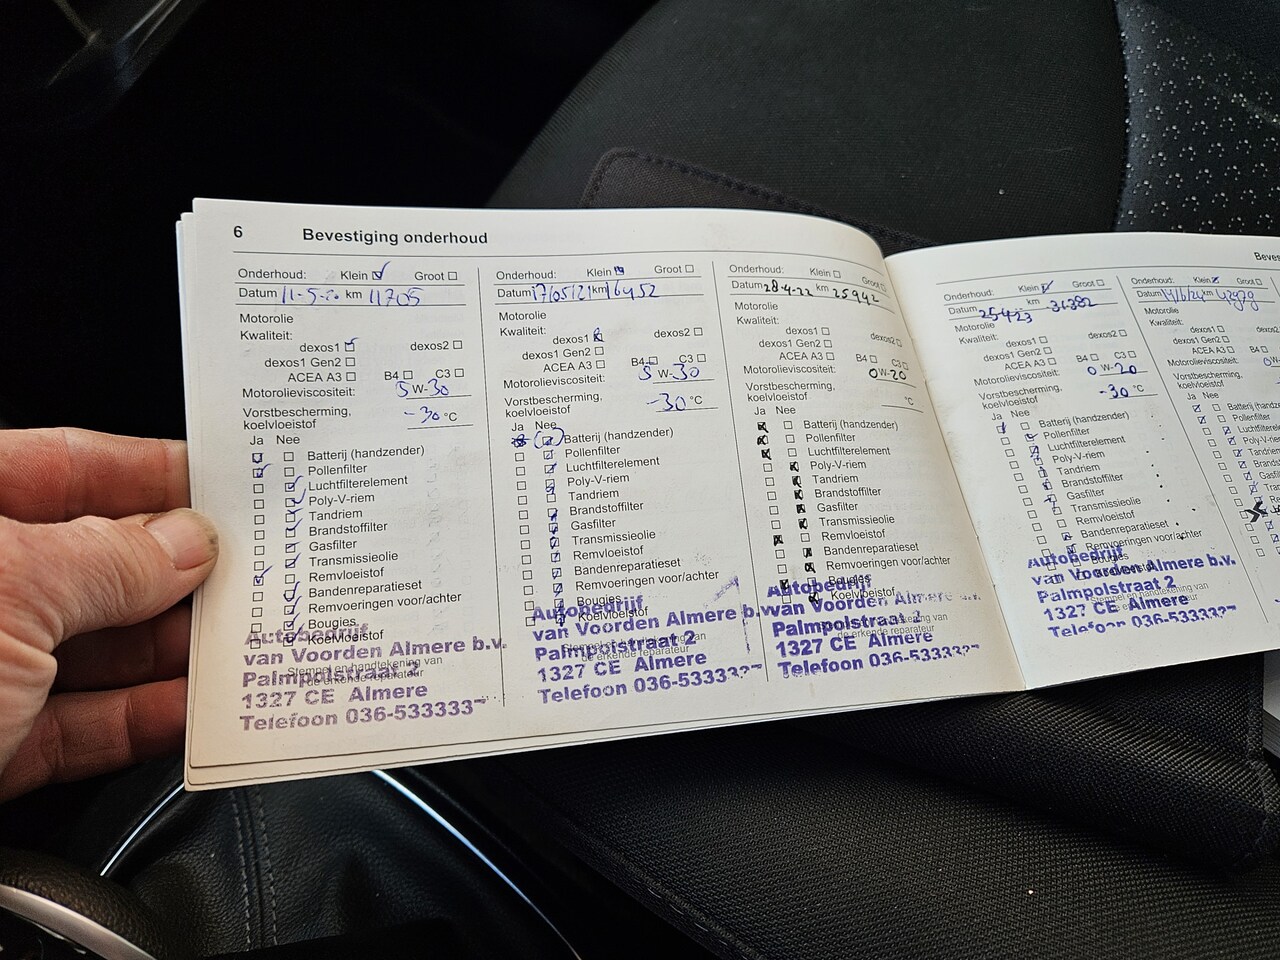 6 Bevestiging onderhoud
Onderhoud: Klein Groot
Datum 11-5-20 km 11705
Motorolie
Kwaliteit:
dexos1 dexos2
dexos1 Gen2
ACEA A3 B4 C3
Motorolieviscositeit: 5 W-30
Vorstbescherming,
koelvloeistof -30 °C
Ja Nee
Batterij (handzender)
Pollenfilter
Luchtfilterelement
Poly-V-riem
Tandriem
Brandstoffilter
Gasfilter
Transmissieolie
Remvloeistof
Bandenreparatieset
Remvoeringen voor/achter
Bougies
Koelvloeistof
Stempel en handtekening van
de erkende reparateur
Autobedrijf
van Voorden Almere b.v.
Palmpolstraat 2
1327 CE Almere
Telefoon 036-533333
Onderhoud: Klein Groot
Datum 17/05/21 km 16452
Motorolie
Kwaliteit:
dexos1 dexos2
dexos1 Gen2
ACEA A3 B4 C3
Motorolieviscositeit: 5 W-30
Vorstbescherming,
koelvloeistof -30 °C
Ja Nee
Batterij (handzender)
Pollenfilter
Luchtfilterelement
Poly-V-riem
Tandriem
Brandstoffilter
Gasfilter
Transmissieolie
Remvloeistof
Bandenreparatieset
Remvoeringen voor/achter
Bougies
Koelvloeistof
Stempel en handtekening van
de erkende reparateur
Autobedrijf
van Voorden Almere b.v.
Palmpolstraat 2
1327 CE Almere
Telefoon 036-5333
Onderhoud: Klein Groot
Datum 28-4-22 km 25942
Motorolie
Kwaliteit:
dexos1 dexos2
dexos1 Gen2
ACEA A3 B4 C3
Motorolieviscositeit: 0 W-20
Vorstbescherming,
koelvloeistof °C
Ja Nee
Batterij (handzender)
Pollenfilter
Luchtfilterelement
Poly-V-riem
Tandriem
Brandstoffilter
Gasfilter
Transmissieolie
Remvloeistof
Bandenreparatieset
Remvoeringen voor/achter
Bougies
Koelvloeistof
de erkende reparateur
Autobedrijf
van Voorden Almere
Palmpolstraat 2
1327 CE Almere
Telefoon 036-5333
Onderhoud: Klein Groot
Datum 25-4-23 km 31382
Motorolie
Kwaliteit:
dexos1 dexos2
dexos1 Gen2
ACEA A3 B4 C3
Motorolieviscositeit: 0 W-20
Vorstbescherming,
koelvloeistof -30 °C
Ja Nee
Batterij (handzender)
Pollenfilter
Luchtfilterelement
Poly-V-riem
Tandriem
Brandstoffilter
Gasfilter
Transmissieolie
Remvloeistof
Bandenreparatieset
Remvoeringen voor/achter
Bougies
Autobedrijf
van Voorden Almere b.v.
Palmpolstraat 2
1327 CE Almere
Telefoon 036-53333
Beves
Onderhoud: Klein Groot
Datum km
Motorolie
Kwaliteit:
dexos1 dexos2
dexos1 Gen2
ACEA A3
Motorolieviscositeit:
Vorstbescherming,
koelvloeistof
Ja Nee
Batterij (handz
Pollenfilter
Luchtfilterele
Poly-V-rie
Tandriem
Brands
Gasfilte
Tra